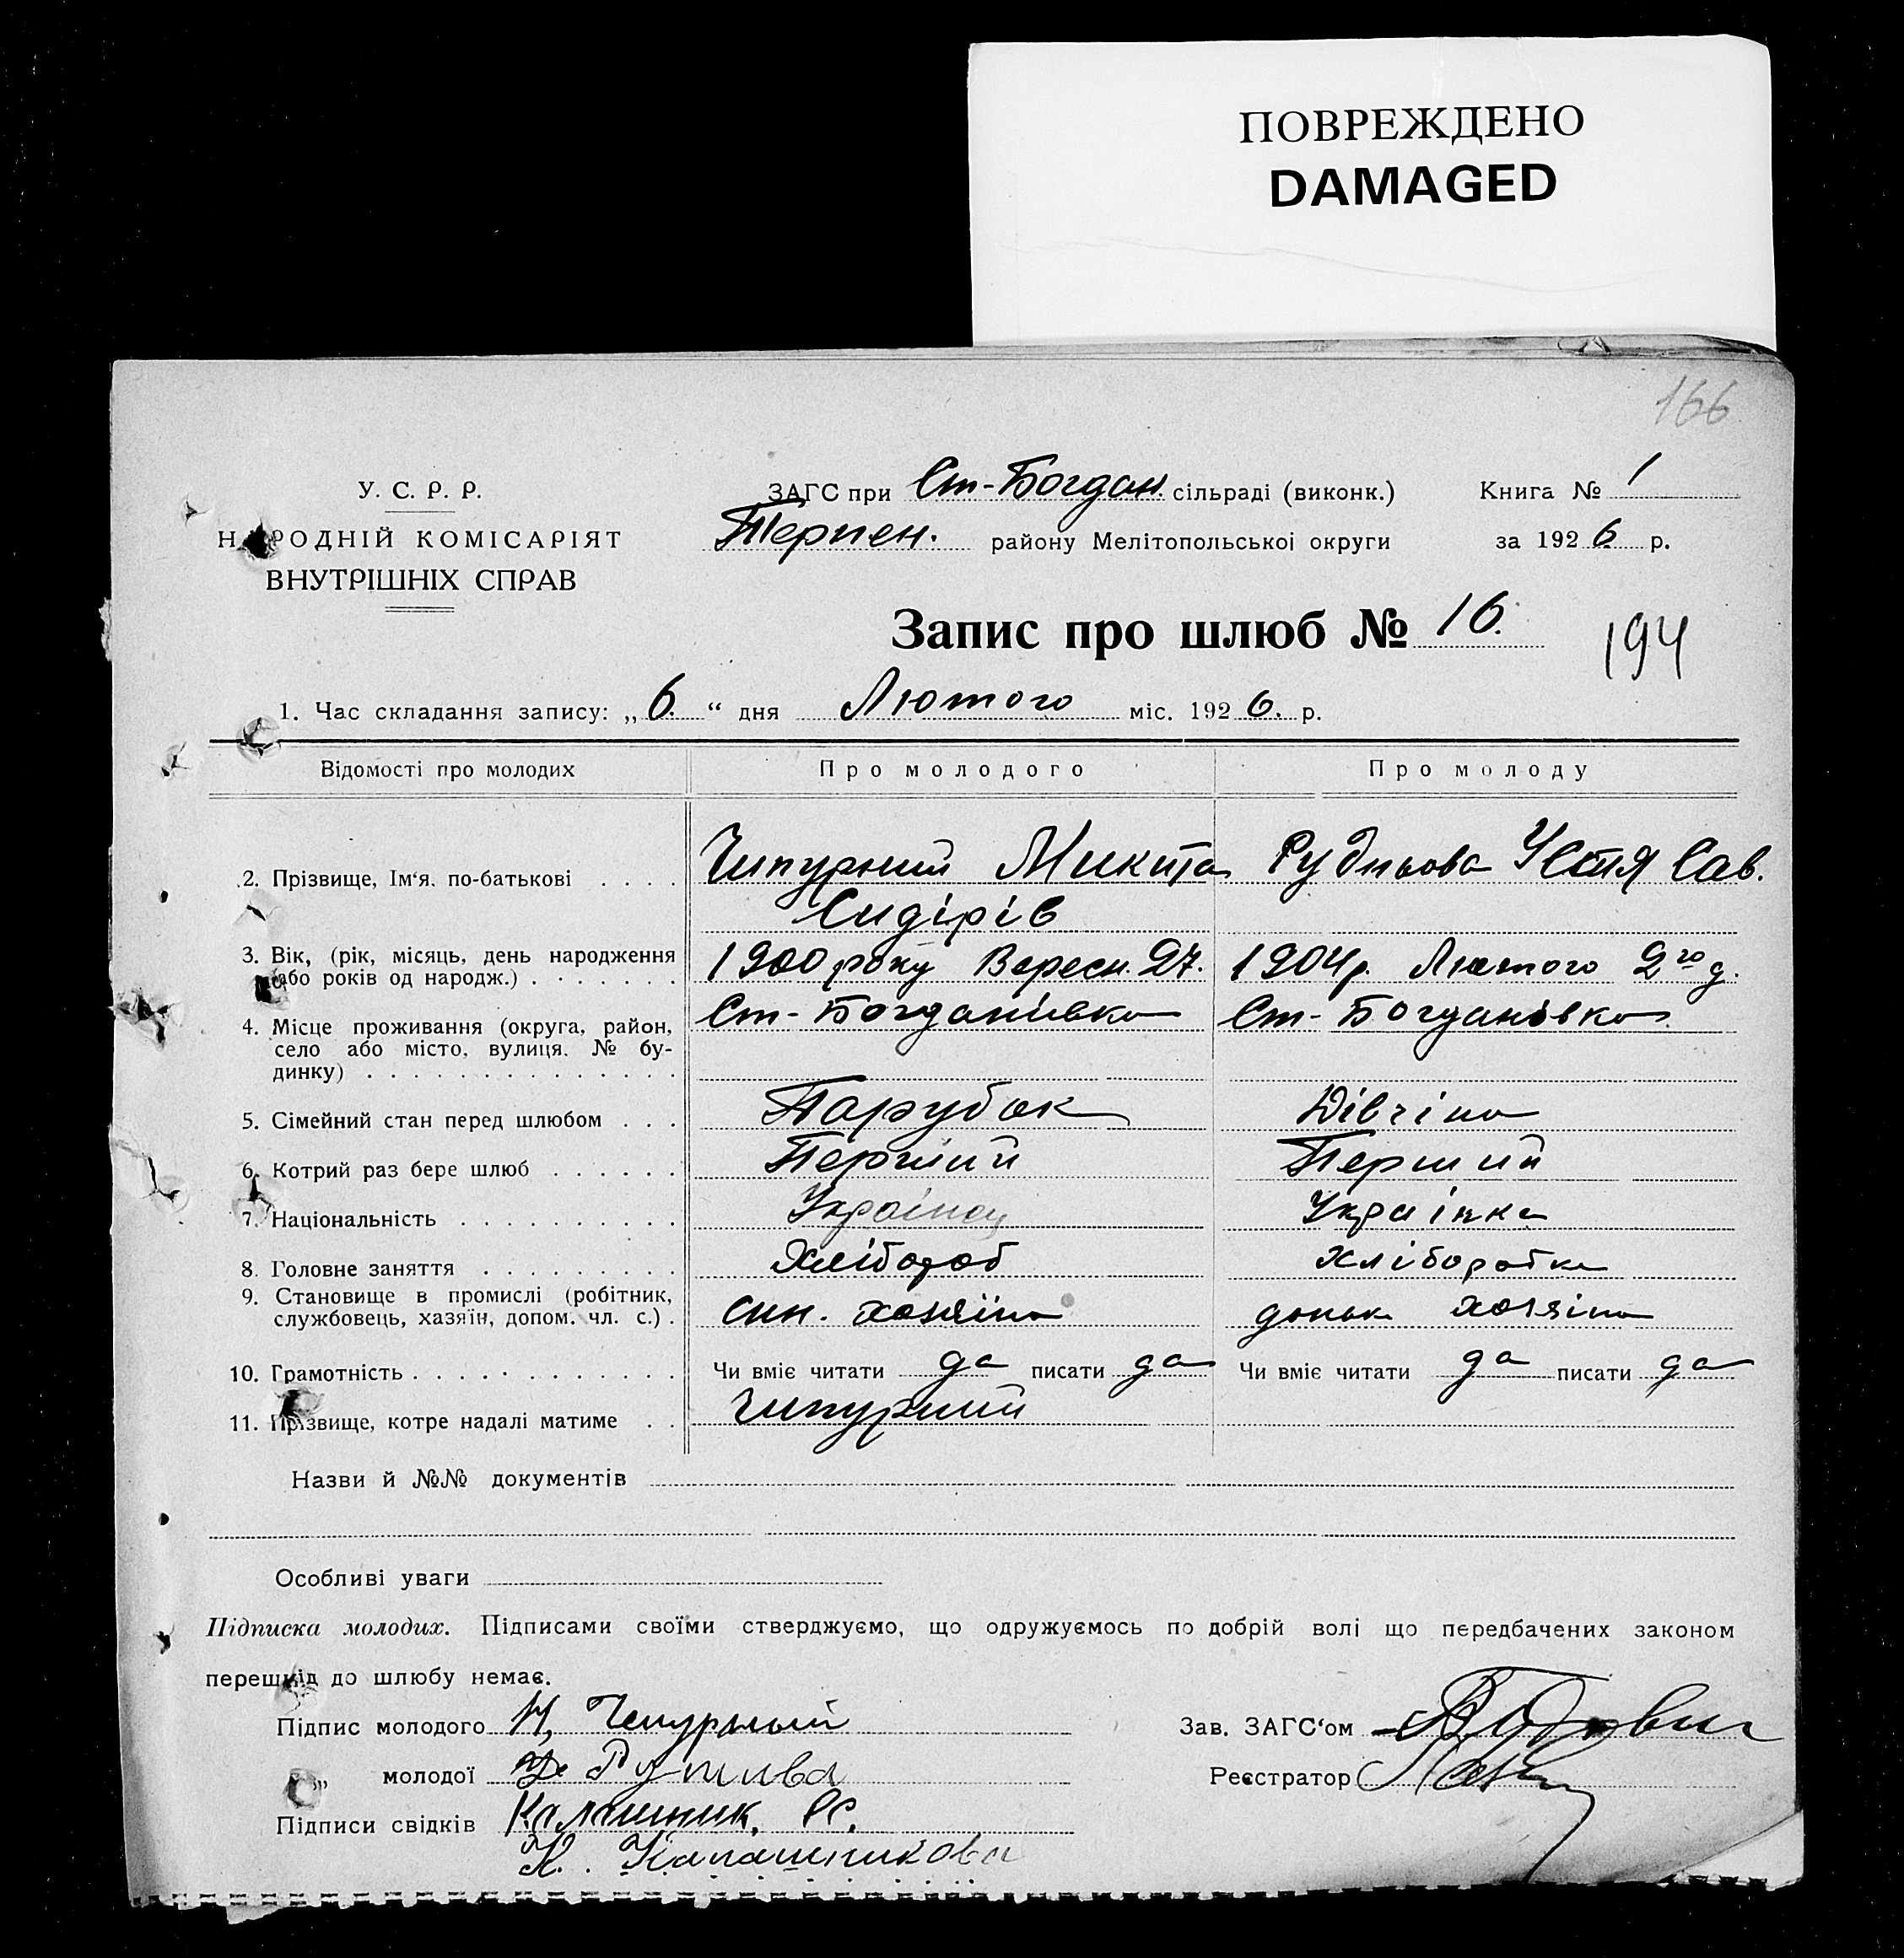 ПОВРЕЖДЕНО
DAMAGED
166
У. С. Р. Р.
НАРОДНІЙ КОМІСАРІЯТ
ВНУТРІШНІХ СПРАВ
ЗАГС при Ст-Богдан. сільраді (виконк.) Книга № 1
Терпен. району Мелітопольської округи за 1926 р.
Запис про шлюб № 16. 194
1. Час складання запису: „6.“ дня Лютого міс. 1926. р.
Відомості про молодих Про молодого Про молоду
2. Прізвище, Ім'я, по-батькові . . . . Чипурний Микита Рудньова Устя Сав.
Сидірів
3. Вік, (рік, місяць, день народження 1900 року Вересн. 27. 1904 р. Лютого 2го д.
або років од народж.) . . . . . . .
4. Місце проживання (округа, район, Ст-Богданівка Ст-Богданівка
село або місто, вулиця, № бу-
динку) . . . . . . . . . . . . . .
5. Сімейний стан перед шлюбом . . . Парубок Дівчіна
6. Котрий раз бере шлюб . . . . . . Перший Перший
7. Національність . . . . . . . . . . Українец Українка
8. Головне заняття . . . . . . . . . Хлібороб Хліборобка
9. Становище в промислі (робітник,
службовець, хазяїн, допом. чл. с.) . син. хозяїна донька хозяіна
10. Грамотність . . . . . . . . . . . . Чи вміє читати да писати да Чи вміє читати да писати да
11. Прізвище, котре надалі матиме . . Чипурний
Назви й №№ документів
Особливі уваги
Підписка молодих. Підписами своїми стверджуємо, що одружуємось по добрій волі що передбачених законом
перешкід до шлюбу немає.
Підпис молодого Н, Чепурный Зав. ЗАГС'ом
„ молодої Реєстратор
Підписи свідків Калашник. С.
К. Калашникова